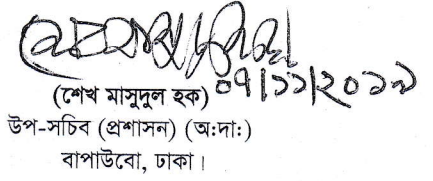 ০৭/১১/২০১৯
(শেখ মাসুদুল হক)
উপ-সচিব (প্রশাসন) (অ:দা:)
বাপাউবো, ঢাকা।